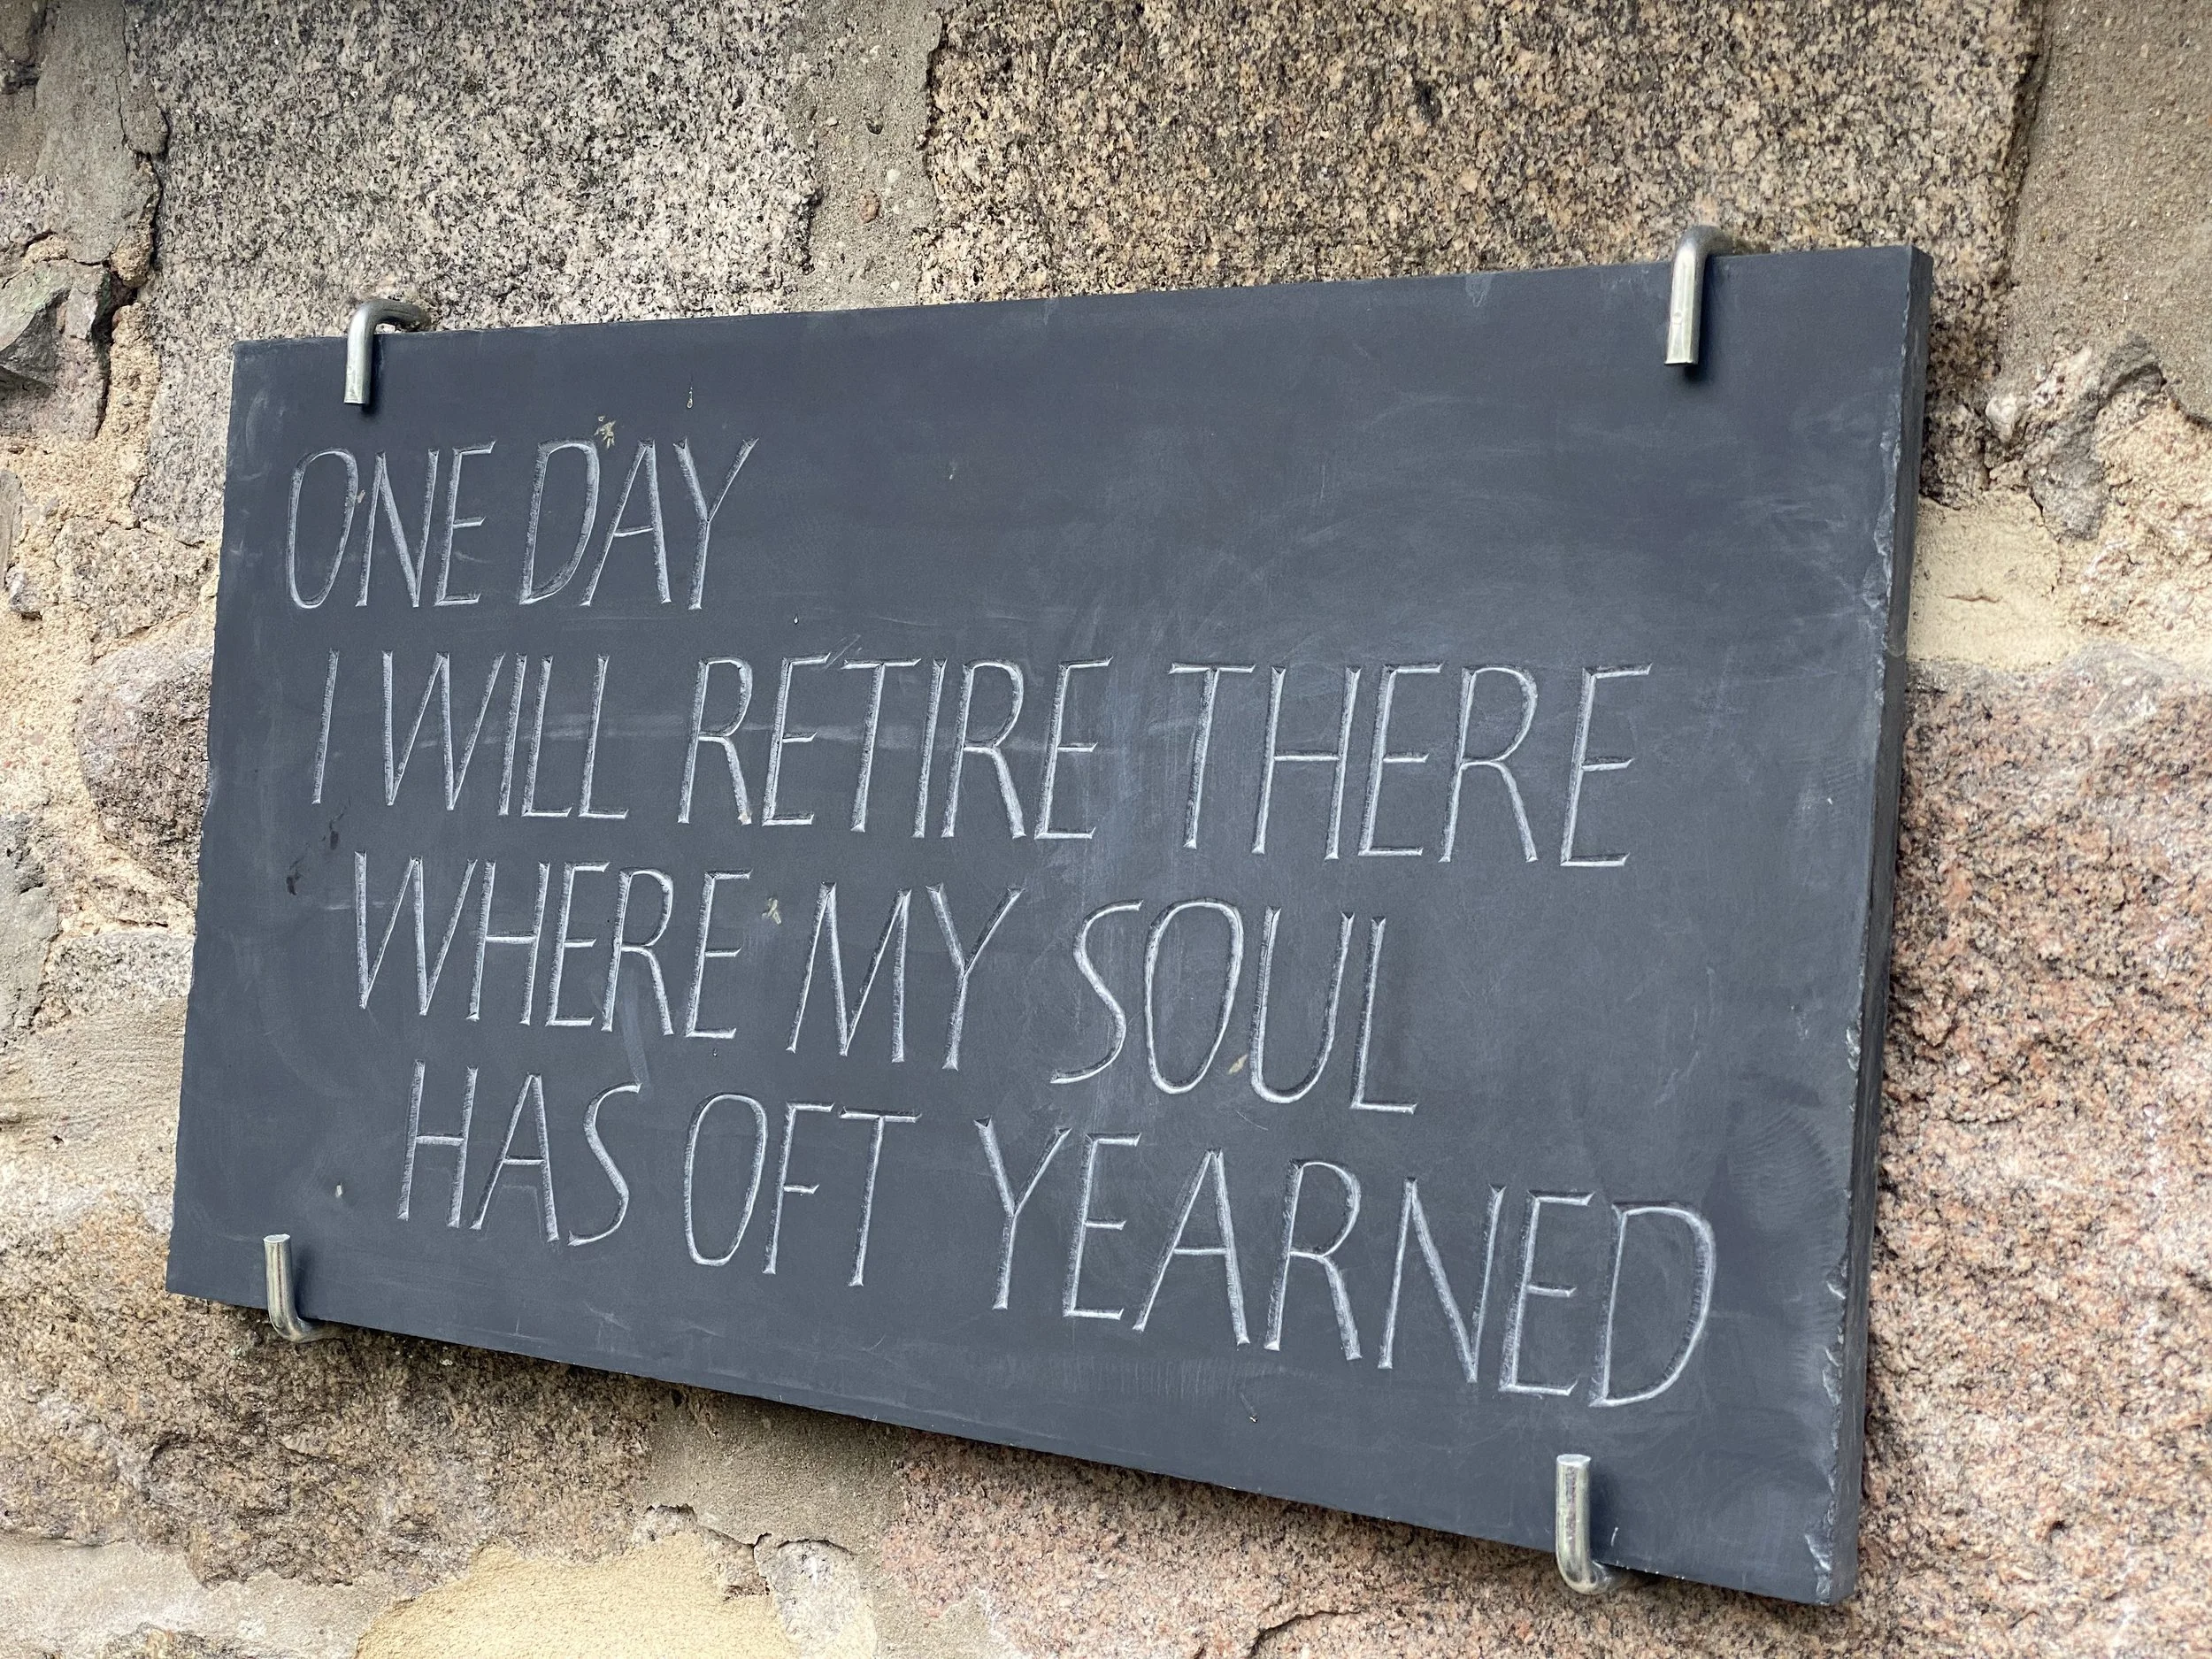 ONE DAY
I WILL RETIRE THERE
WHERE MY SOUL
HAS OFT YEARNED